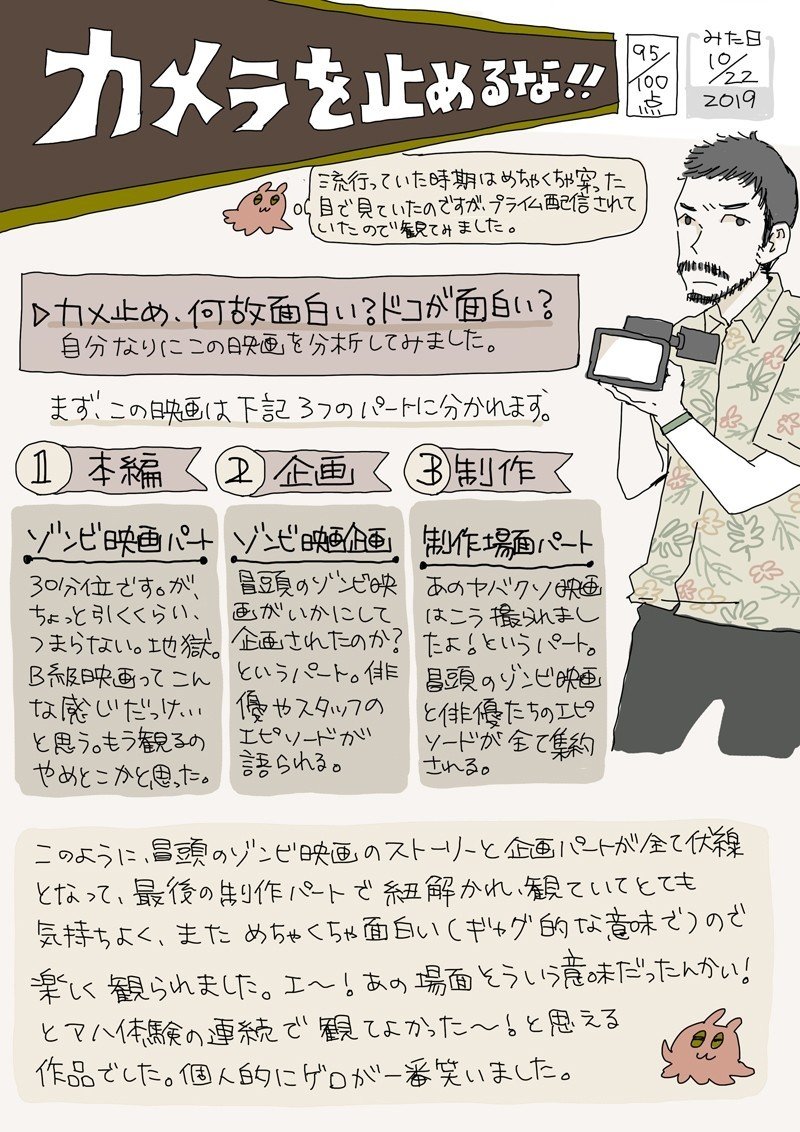 カメラを止めるな!!
95/100点
みた日
10/22
2019
流行っていた時期はめちゃくちゃ穿った
目で見ていたのですが、プライム配信されて
いたので観てみました。
▷カメ止め、何故面白い?ドコが面白い?
自分なりにこの映画を分析してみました。
まず、この映画は下記3つのパートに分かれます。
1 本編
ゾンビ映画パート
30分位です。が、
ちょっと引くくらい、
つまらない。地獄。
B級映画ってこん
な感じだっけ…
と思う。もう観るの
やめとこかと思った。
2 企画
ゾンビ映画企画
冒頭のゾンビ映
画がいかにして
企画されたのか?
というパート。俳
優やスタッフの
エピソードが
語られる。
3 制作
制作場面パート
あのヤバクソ映画
はこう撮られまし
たよ!というパート。
冒頭のゾンビ映画
と俳優たちのエピ
ソードが全て集約
される。
このように、冒頭のゾンビ映画のストーリーと企画パートが全て伏線
となって、最後の制作パートで紐解かれ、観ていてとても
気持ちよく、また めちゃくちゃ面白い(ギャグ的な意味で)ので
楽しく観られました。エ〜!あの場面そういう意味だったんかい!
とアハ体験の連続で観てよかった〜!と思える
作品でした。個人的にゲロが一番笑いました。